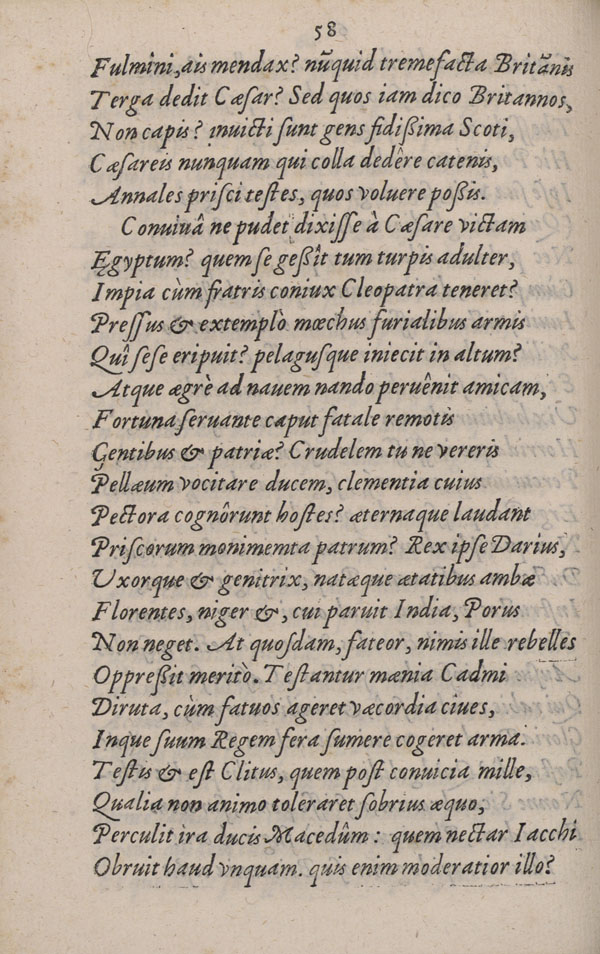 58
Fulmini, ais mendax? nūquid tremefacta Britānis
Terga dedit Cæsar? Sed quos iam dico Britannos,
Non capis? inuicti sunt gens fidißima Scoti,
Cæsareis nunquam qui colla dedêre catenis,
Annales prisci testes, quos voluere poßis.
Conuiuâ ne pudet dixisse à Cæsare victam
Ęgyptum? quem se geßît tum turpis adulter,
Impia cùm fratris coniux Cleopatra teneret?
Pressus & extemplò mœchus furialibus armis
Quî sese eripuit? pelagusque iniecit in altum?
Atque ægrè ad nauem nando peruênit amicam,
Fortuna seruante caput fatale remotis
Gentibus & patriæ? Crudelem tu ne vereris
Pellæum vocitare ducem, clementia cuius
Pectora cognôrunt hostes? æternaque laudant
Priscorum monimemta patrum? Rex ipse Darius,
Uxorque & genitrix, natæque ætatibus ambæ
Florentes, niger &, cui paruit India, Porus
Non neget. At quosdam, fateor, nimis ille rebelles
Oppreßit meritò. Testantur mænia Cadmi
Diruta, cùm fatuos ageret væcordia ciues,
Inque suum Regem fera sumere cogeret arma.
Testis & est Clitus, quem post conuicia mille,
Qualia non animo toleraret sobrius æquo,
Perculit ira ducis Macedûm: quem nectar Iacchi
Obruit haud vnquam. quis enim moderatior illo?